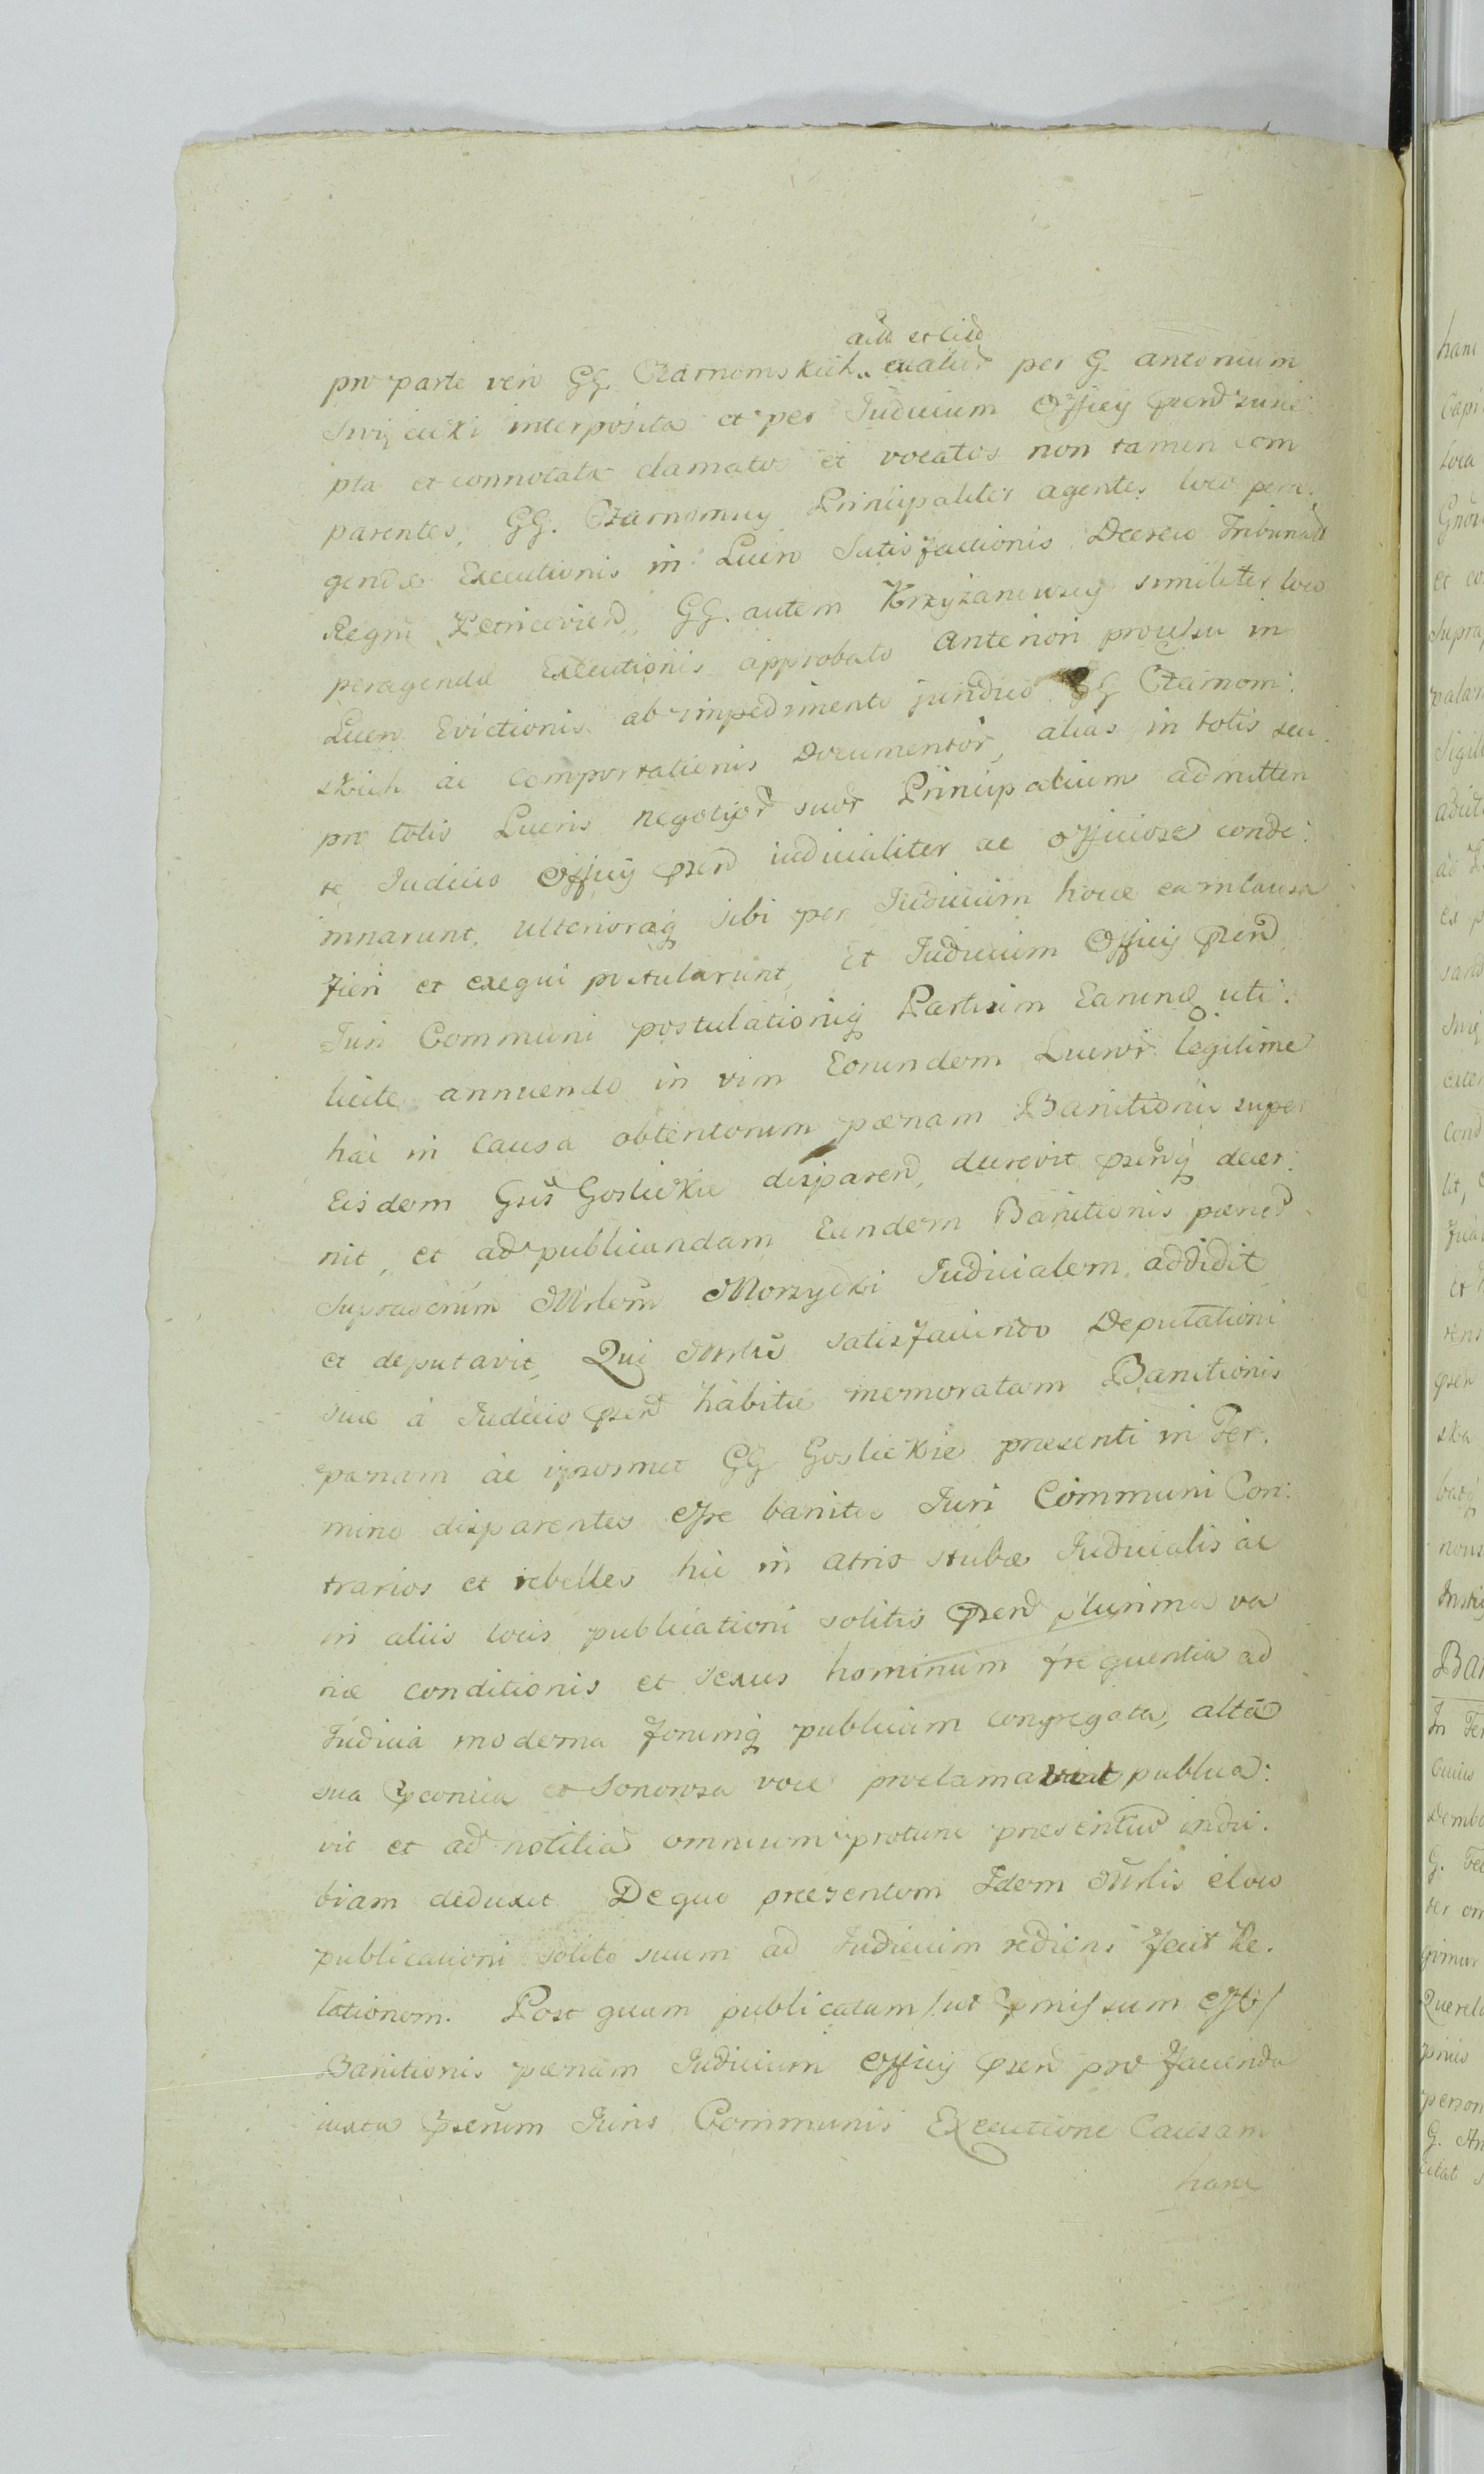 pro parte vero GG Czarnomskich exalis per G. antonium
Swięcicki interposita et per Iudicium Officy prsend susce
pta et connotata clamatos et vocatos non tamen com
parentes, GG. Czarnomscy Principaliter agentes loco pera
gendæ Executionis in Lucro Satisfactionis Decreto Tribunal
Regni Petricovien, GG. autem Krzyżanowscy similiter loco
peragendæ Executionis approbato anteriori processu in
Lucro Evictionis ab impedimento juridico GG Czarnom:
skich ac comportationis Documentor, alias in totis seu
pro totis Lucris negotior suor Principalium admitten
te Iudicio Officy prsen iudicialiter ac officiose conde:
mnarunt, ulterioraq sibi per Iudicium hocce ea in causa
fieri et exequi postularunt, Et Iudicium Officy prsen
Juri Communi postulationiq Partium Earund uti:
licite annuendo in vim Eorundem Lucror legitime
hac in causa obtentorum pœnam Banitionis super
Eisdem Gsis Goslickie disparen, decrevit prsenq decer:
nit, et ad publicandam Eandem Banitionis pœnam
suprascrium Mrlem Morzycki Iudicialem addidit
et deputavit, Qui Mrlis satisfaciendo Deputationi
suæ a Iudicio prsen habitæ memoratam Banitionis
pœnam ac ipsosmet GG Goslickie præsenti in Ter.
mino disparentes esse banitos Juri Communi Con:
trarios et rebelles hic in atrio stubæ Iudicialis ac
in aliis locis publicationi solitis prsen plurima va
riæ conditionis et sexus hominum frequentia ad
Iudicia moderna forumq publicum congregata, alta
sua præconica et Sonorosa voce proclamavit publica:
vit et ad notitia omnium protunc præsentium indu:
biam deduxit De quo præsentem Idem Mrlis e loco
publicationi solito suum ad Iudicium rediens fecit Re.
lationem. Post quam publicatam /ut præmissum est/
Banitionis pœnam Iudicium Officy prsen pro facienda
iuxta præscrum Juris Communis Executione Causam
hanc